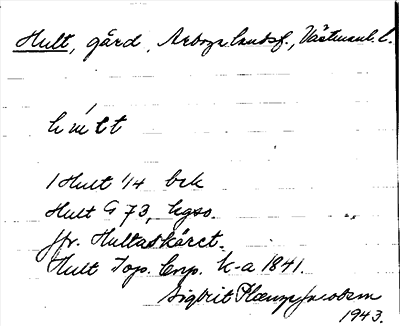 Hult, gård, Arboga landsf., Västmanl. l.
1 Hult 1/4 bek
Hult G 73, hgso.
Jfr. Hultaskäret.
Hult Top. Corp. k-a 1841.
Sigbrit Plænge Jacobson
1943.